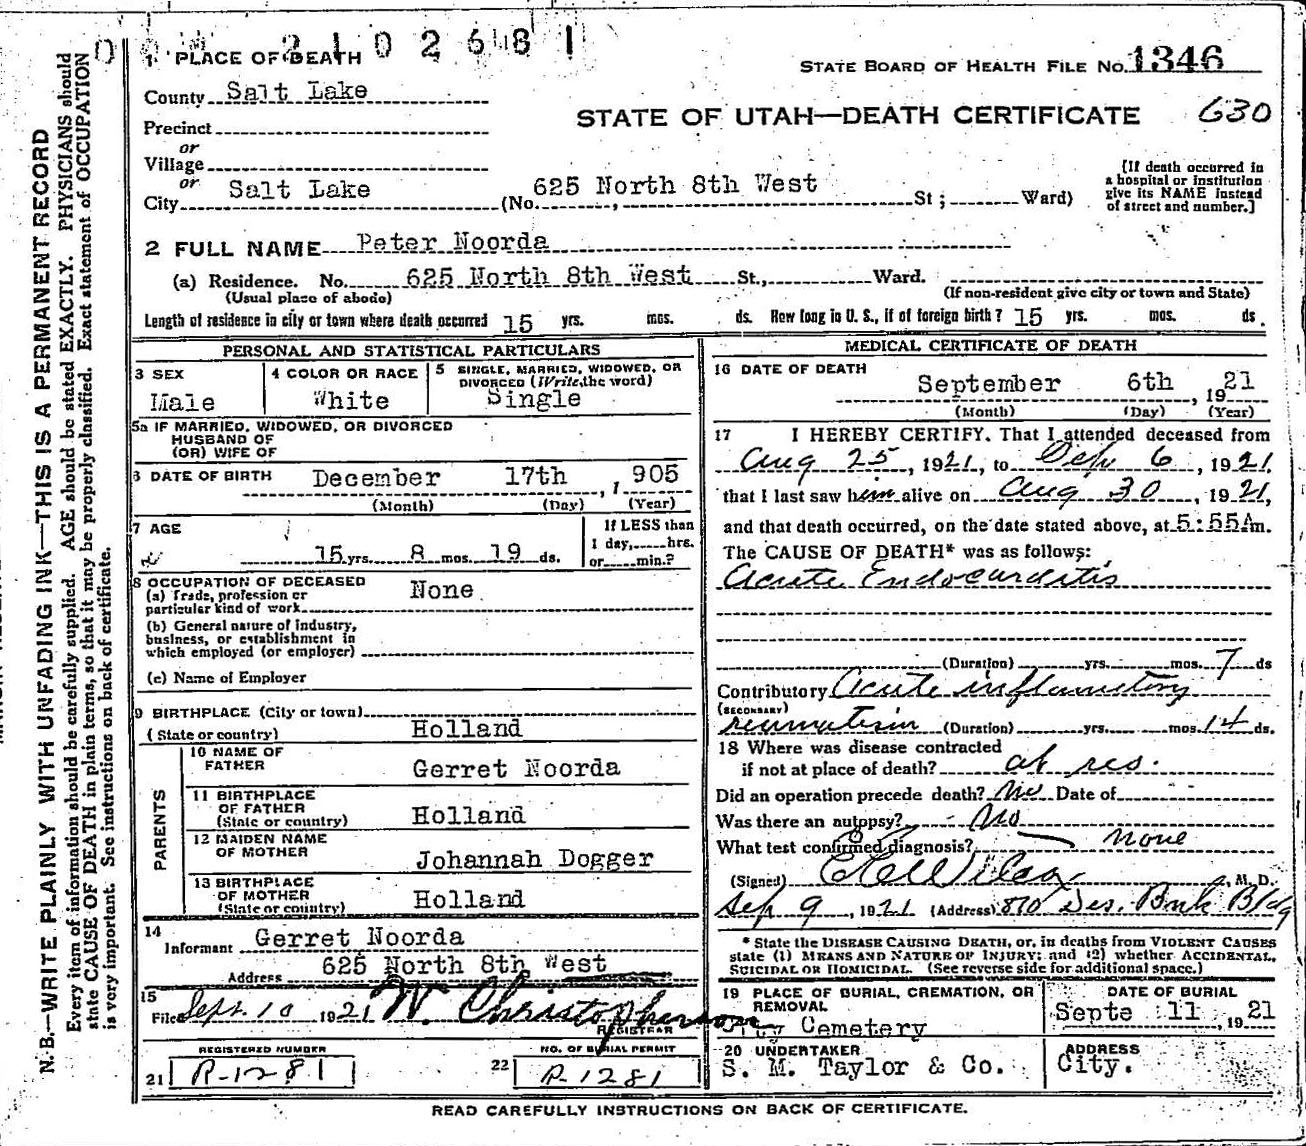 2102681
1 PLACE OF DEATH
STATE BOARD OF HEALTH FILE NO. 1346
County Salt Lake
STATE OF UTAH—DEATH CERTIFICATE 630
Precinct
or
Village
or
City Salt Lake (No. 625 North 8th West St; Ward)
[If death occurred in
a hospital or institution
give its NAME instead
of street and number.]
2 FULL NAME Peter Noorda
(a) Residence. No. 625 North 8th West St., Ward.
(Usual place of abode) (If non-resident give city or town and State)
Length of residence in city or town where death occurred 15 yrs. mos. ds. How long in U. S., if of foreign birth? 15 yrs. mos. ds.
PERSONAL AND STATISTICAL PARTICULARS
3 SEX
Male
4 COLOR OR RACE
White
5 SINGLE, MARRIED, WIDOWED, OR
DIVORCED (Write the word)
Single
5a IF MARRIED, WIDOWED, OR DIVORCED
HUSBAND OF
(OR) WIFE OF
6 DATE OF BIRTH December 17th, 1905
(Month) (Day) (Year)
7 AGE
15 yrs. 8 mos. 19 ds.
If LESS than
1 day,.....hrs.
or.....min.?
8 OCCUPATION OF DECEASED
(a) Trade, profession or
particular kind of work None
(b) General nature of industry,
business, or establishment in
which employed (or employer)
(c) Name of Employer
9 BIRTHPLACE (City or town)
(State or country) Holland
PARENTS
10 NAME OF
FATHER Gerret Noorda
11 BIRTHPLACE
OF FATHER
(State or country) Holland
12 MAIDEN NAME
OF MOTHER Johannah Dogger
13 BIRTHPLACE
OF MOTHER
(State or country) Holland
14
Informant Gerret Noorda
Address 625 North 8th West
15
Filed Sept. 10 1921 W. Christopherson
REGISTRAR
REGISTERED NUMBER
21 R-1281
NO. OF BURIAL PERMIT
22 R-1281
MEDICAL CERTIFICATE OF DEATH
16 DATE OF DEATH
September 6th, 1921
(Month) (Day) (Year)
17 I HEREBY CERTIFY, That I attended deceased from
Aug 25, 1921, to Sep 6, 1921,
that I last saw him alive on Aug 30, 1921,
and that death occurred, on the date stated above, at 5:55A m.
The CAUSE OF DEATH* was as follows:
Acute Endocarditis
(Duration) yrs. mos. 7 ds
Contributory Acute inflametory
(SECONDARY)
reumatism (Duration) yrs. mos. 14 ds.
18 Where was disease contracted
if not at place of death? at res.
Did an operation precede death? No Date of
Was there an autopsy? No
What test confirmed diagnosis? none
(Signed) M. D.
Sep 9, 1921 (Address) 810 Des. Bnk Bldg
* State the DISEASE CAUSING DEATH, or, in deaths from VIOLENT CAUSES
state (1) MEANS AND NATURE OF INJURY; and (2) whether ACCIDENTAL,
SUICIDAL OR HOMICIDAL. (See reverse side for additional space.)
19 PLACE OF BURIAL, CREMATION, OR
REMOVAL
City Cemetery
DATE OF BURIAL
Septe 11, 1921
20 UNDERTAKER
S. M. Taylor & Co.
ADDRESS
City.
READ CAREFULLY INSTRUCTIONS ON BACK OF CERTIFICATE.
N. B.—WRITE PLAINLY WITH UNFADING INK—THIS IS A PERMANENT RECORD
Every item of information should be carefully supplied. AGE should be stated EXACTLY. PHYSICIANS should
state CAUSE OF DEATH in plain terms, so that it may be properly classified. Exact statement of OCCUPATION
is very important. See instructions on back of certificate.